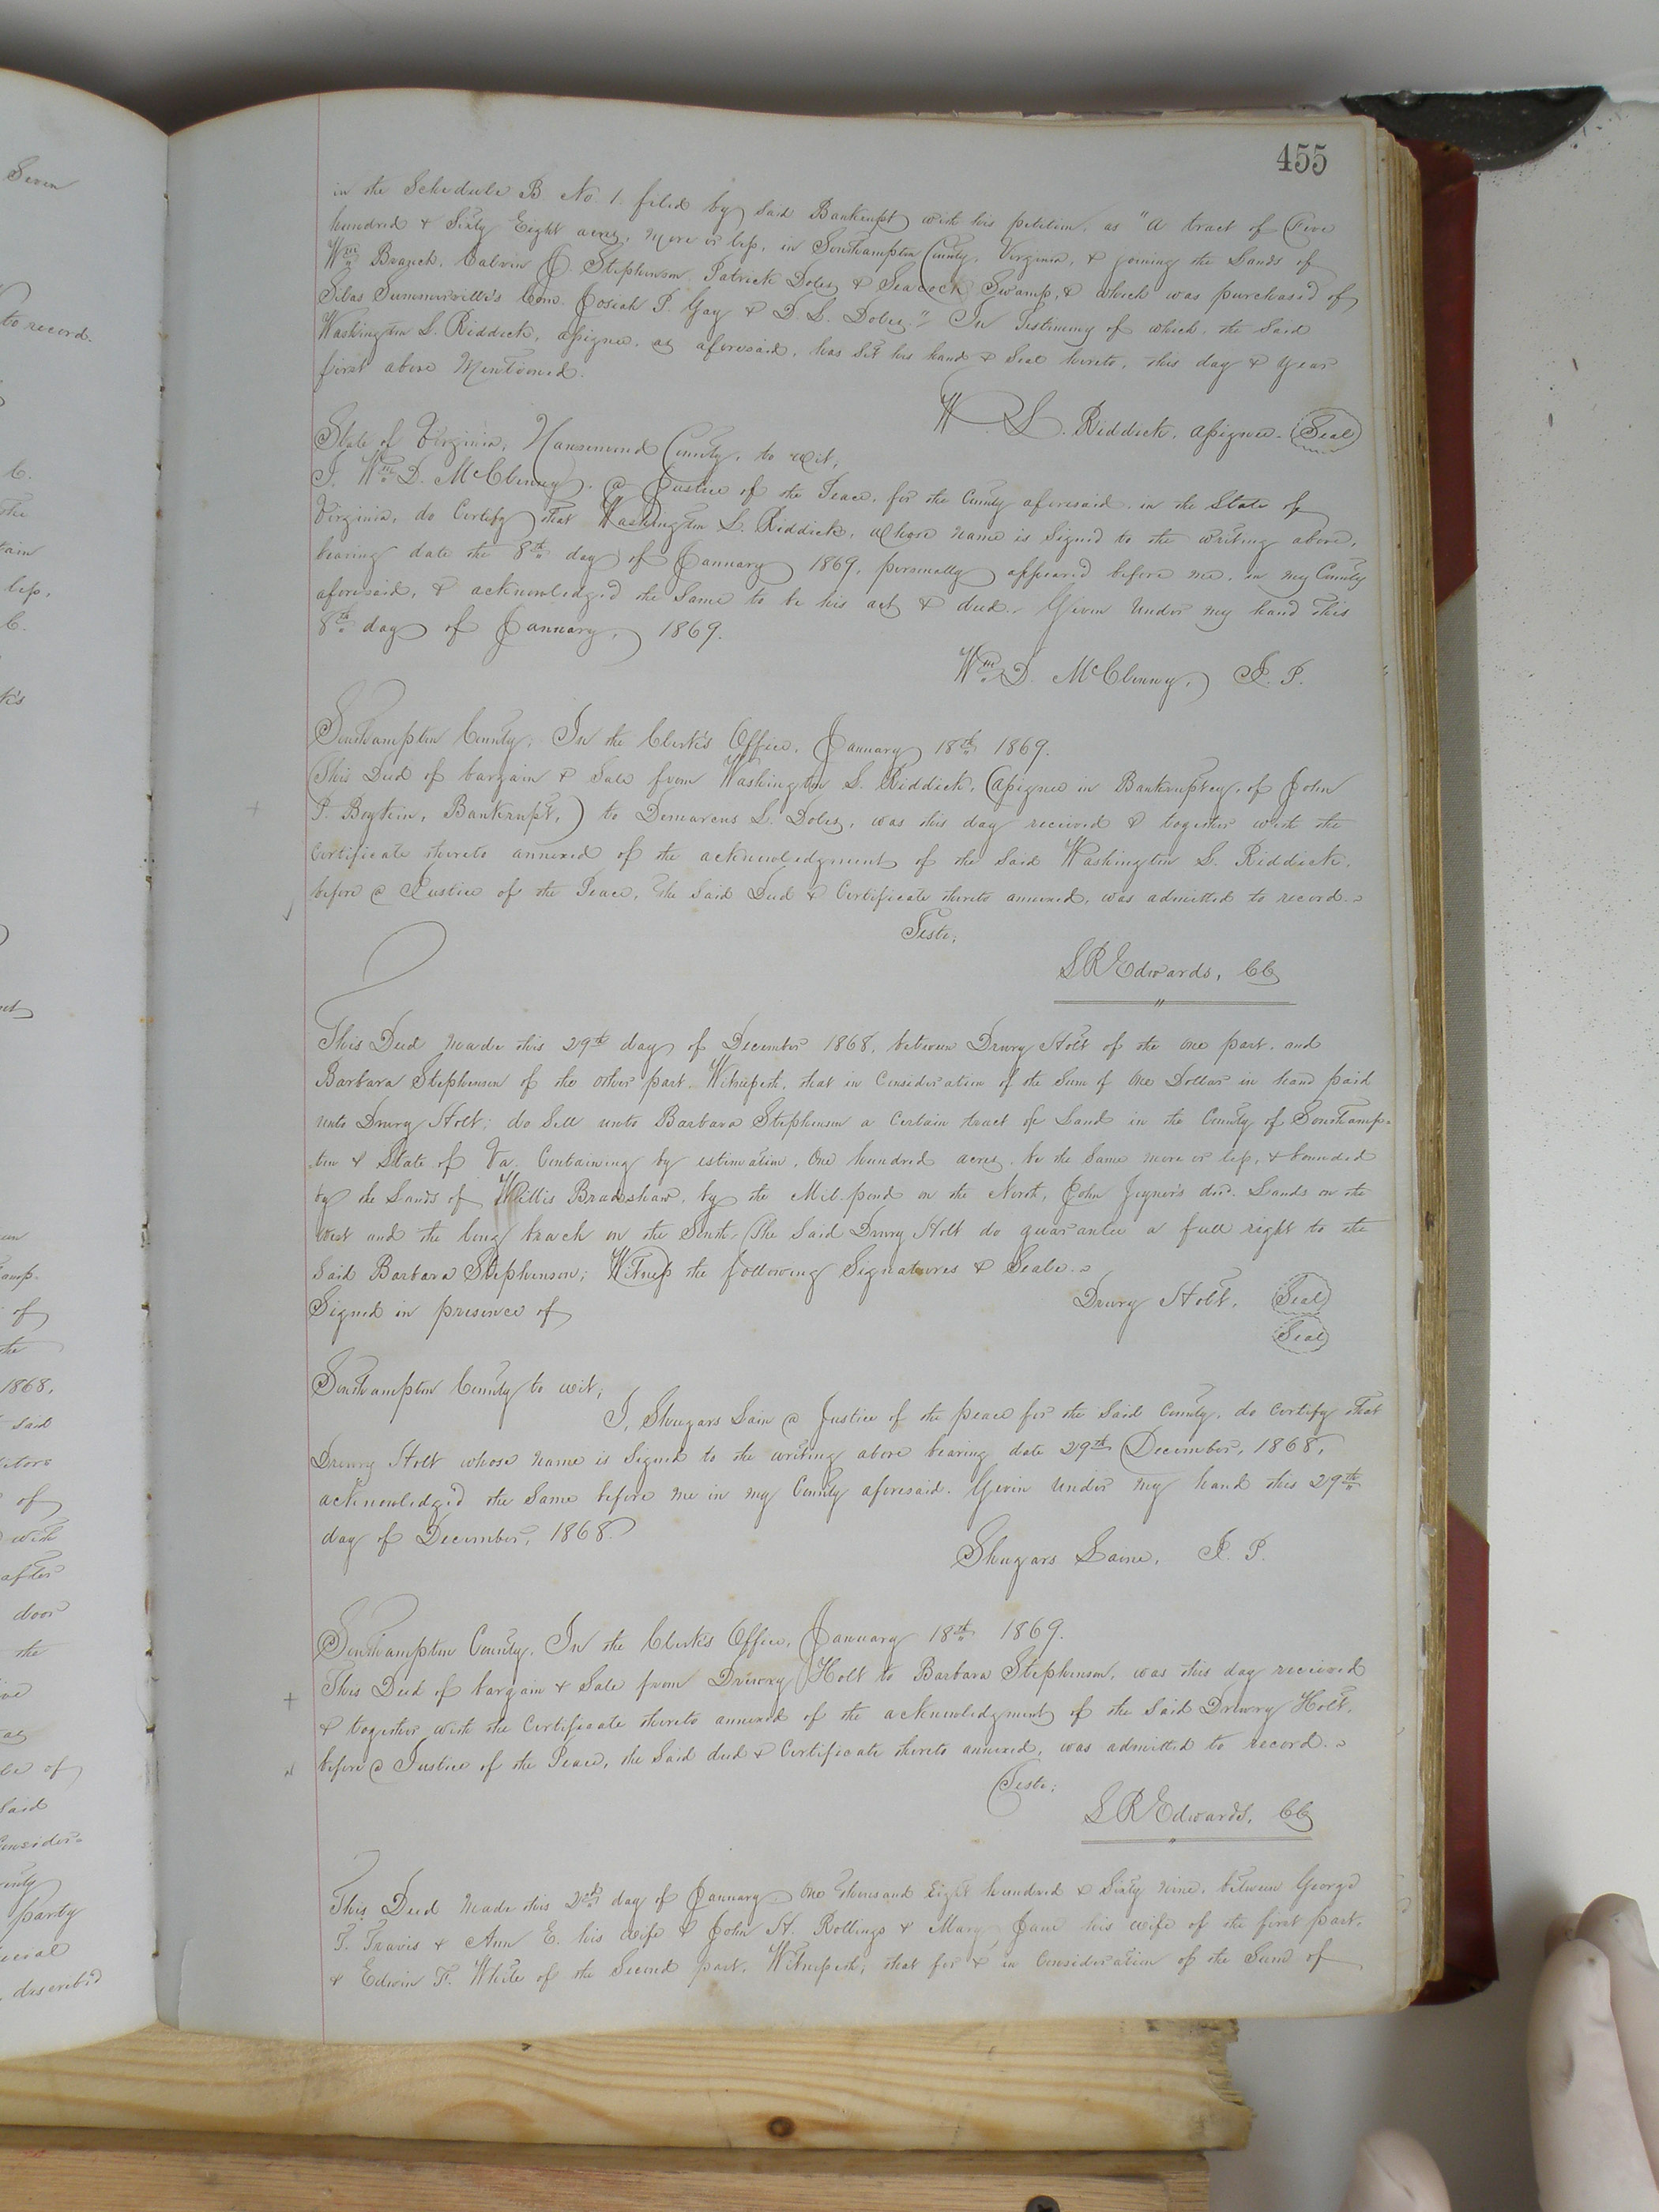 455
in the Schedule B. No 1. filed by said Bankrupt with his petition, as "A tract of Five
hundred & Sixty Eight acres, more or less, in Southampton County, Virginia, & joining the Lands of
Wm Branch, Calvin J Stephenson, Patrick Doles & Seacock Swamp, & which was purchased of
Silas Summerville's Com. Josiah P. Gay & D. L. Doles." In Testimony of which, the Said
Washington L. Riddick, assignee, as aforesaid, has Set his hand & Seal hereto, this day & year
first above Mentioned.
W. L. Riddick, assignee. Seal
State of Virginia, Nansemond County, to wit,
I, Wm D. McClenny, a Justice of the Peace, for the County aforesaid, in the State of
Virginia, do Certify that Washington L. Riddick, whose name is Signed to the writing above,
bearing date the 8th day of January 1869, personally appeared before me, in my County
aforesaid, & acknowledged the Same to be his act & deed. Given Under my hand this
8th day of January, 1869.
Wm D. McClenny, J. P.
Southampton County, In the Clerk's Office, January 18th 1869.
This Deed of bargain & Sale from Washington L. Riddick, (assignee in Bankruptcy, of John
P. Boykin, Bankrupt,) to Demarcus L. Doles, was this day received & together with the
Certificate thereto annexed of the acknowledgment of the Said Washington L. Riddick,
before a Justice of the Peace, the Said Deed & Certificate thereto annexed, was admitted to record.
Teste;
L R Edwards, CC
This Deed made this 29th day of December 1868, between Drewry Holt of the one part, and
Barbara Stephenson of the other part. Witnesseth, that in Consideration of the Sum of One Dollar in hand paid
unto Drewry Holt; do Sell unto Barbara Stephenson a Certain tract of Land in the County of Southamp-
-ton & State of Va. Containing by estimation, One hundred acres, be the Same more or less, & bounded
by the Lands of Willis Bradshaw, by the Mill-pond on the North, John Joyner's decd. Lands on the
West and the long branch on the South. The Said Drewry Holt do guarantee a full right to the
Said Barbara Stephenson; Witness the following Signatures & Seals.
Signed in presence of
Drewry Holt, Seal
Seal
Southampton County to wit;
I, Shugars Lain a Justice of the peace for the Said County, do Certify that
Drewry Holt whose name is Signed to the writing above bearing date 29th December, 1868,
acknowledged the Same before me in my County aforesaid. Given under my hand this 29th
day of December, 1868
Shugars Laine, J. P.
Southampton County, In the Clerk's Office, January 18th 1869.
This Deed of bargain & Sale from Drewry Holt to Barbara Stephenson, was this day received
& together with the Certificate thereto annexed of the acknowledgment of the Said Drewry Holt,
before a Justice of the Peace, the Said deed & Certificate thereto annexed, was admitted to record.
Teste;
L R Edwards, CC
This Deed made this 2nd day of January, One thousand Eight hundred & Sixty nine, between George
T. Travis & Ann E. his wife & John H. Rollings & Mary Jane his wife of the first part,
& Edwin F. White of the Second part, Witnesseth; that for & in Consideration of the Sum of